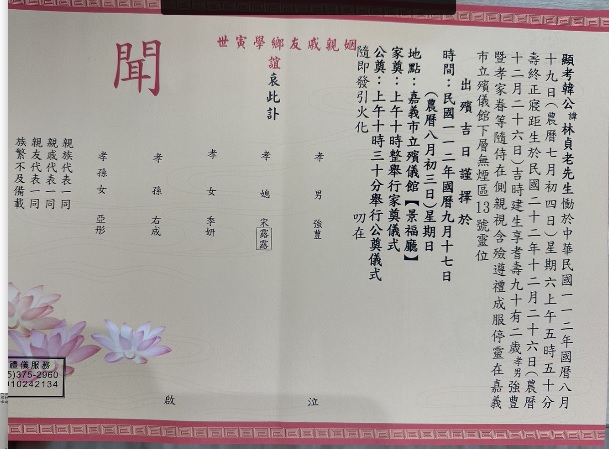 顯考韓公諱林貞老先生慟於中華民國一一二年國曆八月
十九日（農曆七月初四日）星期六上午五時五十分
壽終正寢距生於民國二十二年十二月二十六日（農曆
十二月二十六日）吉時建生享耆壽九十有二歲孝男強豊
暨孝家眷等隨侍在側親視含殮遵禮成服停靈在嘉義
市立殯儀館下層無煙區13號靈位
出殯吉日謹擇於
時間：民國一一二年國曆九月十七日
（農曆八月初三日）星期日
地點：嘉義市立殯儀館【景福廳】
家奠：上午十時整舉行家奠儀式
公奠：上午十時三十分舉行公奠儀式
隨即發引火化 叨在
姻親戚友鄉學寅世
誼哀此訃
聞
孝男 強豊
孝媳 宋露露
孝女 季妍
孝孫 右成
孝孫女 亞彤
親族代表一同
親戚代表一同
親友代表一同
族繁不及備載
泣啟
禮儀服務
5)375-2960
910242134